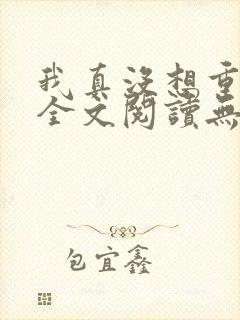 我真没想重
全文閱讀無
包宜鑫